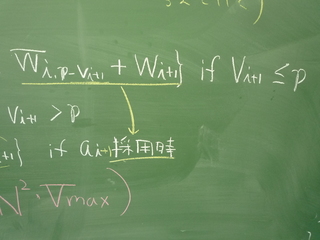 W̅i,p-Vi+1 + Wi+1} if Vi+1 ≤ p
Vi+1 > p
i+1} if ai+1採用時
N²·V̅max)